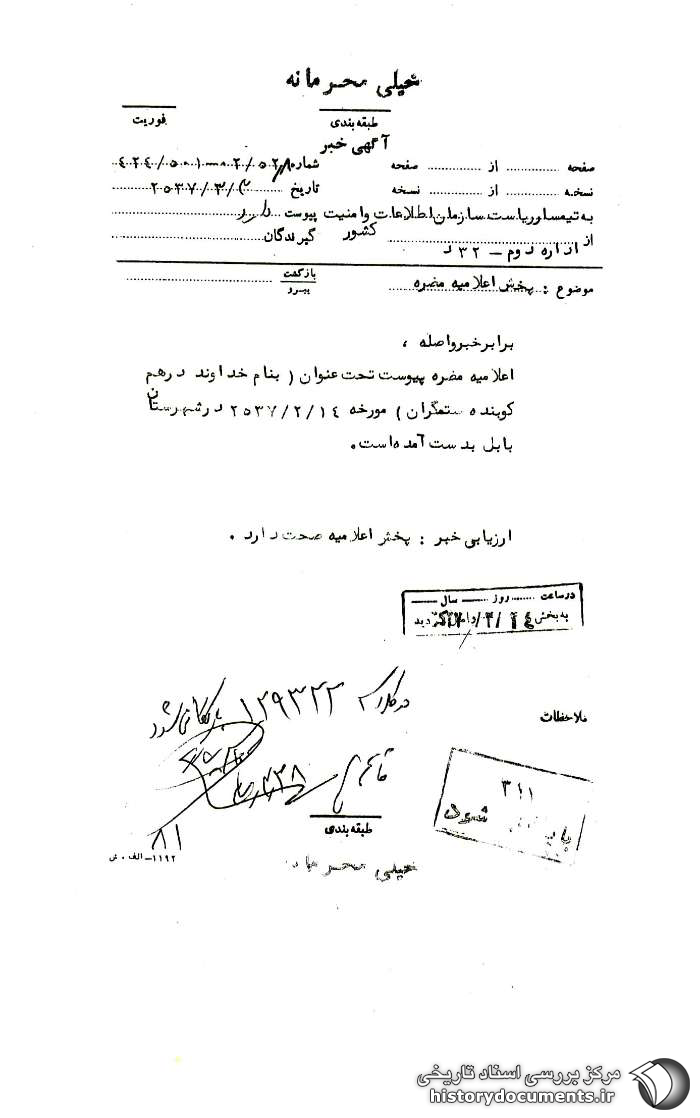 خیلی محرمانه
طبقه بندی
فوریت
آگهی خبر
صفحه از صفحه
شماره
نسخه از نسخه
تاریخ
به تیمسار ریاست سازمان اطلاعات و امنیت کشور پیوست دارد
از اداره دوم – ۳۲ د
گیرندگان
موضوع : پخش اعلامیه مضره
بازگشت
پیرو
برابر خبر واصله ،
اعلامیه مضره پیوست تحت عنوان ( بنام خداوند درهم
کوبنده ستمگران ) مورخه ۲۵۳۷/۲/۱۴ در شهرستان
بابل بدست آمده است .
ارزیابی خبر : پخش اعلامیه صحت دارد .
در ساعت روز سال
به بخش
ملاحظات
در کلاسه ۱۲۹۳۲۲ بایگانی شود
۳۱۱
شود
طبقه بندی
۸۱
۱۱۹۲– الف . ش
خیلی محرمانه
مرکز بررسی اسناد تاریخی
historydocuments.ir